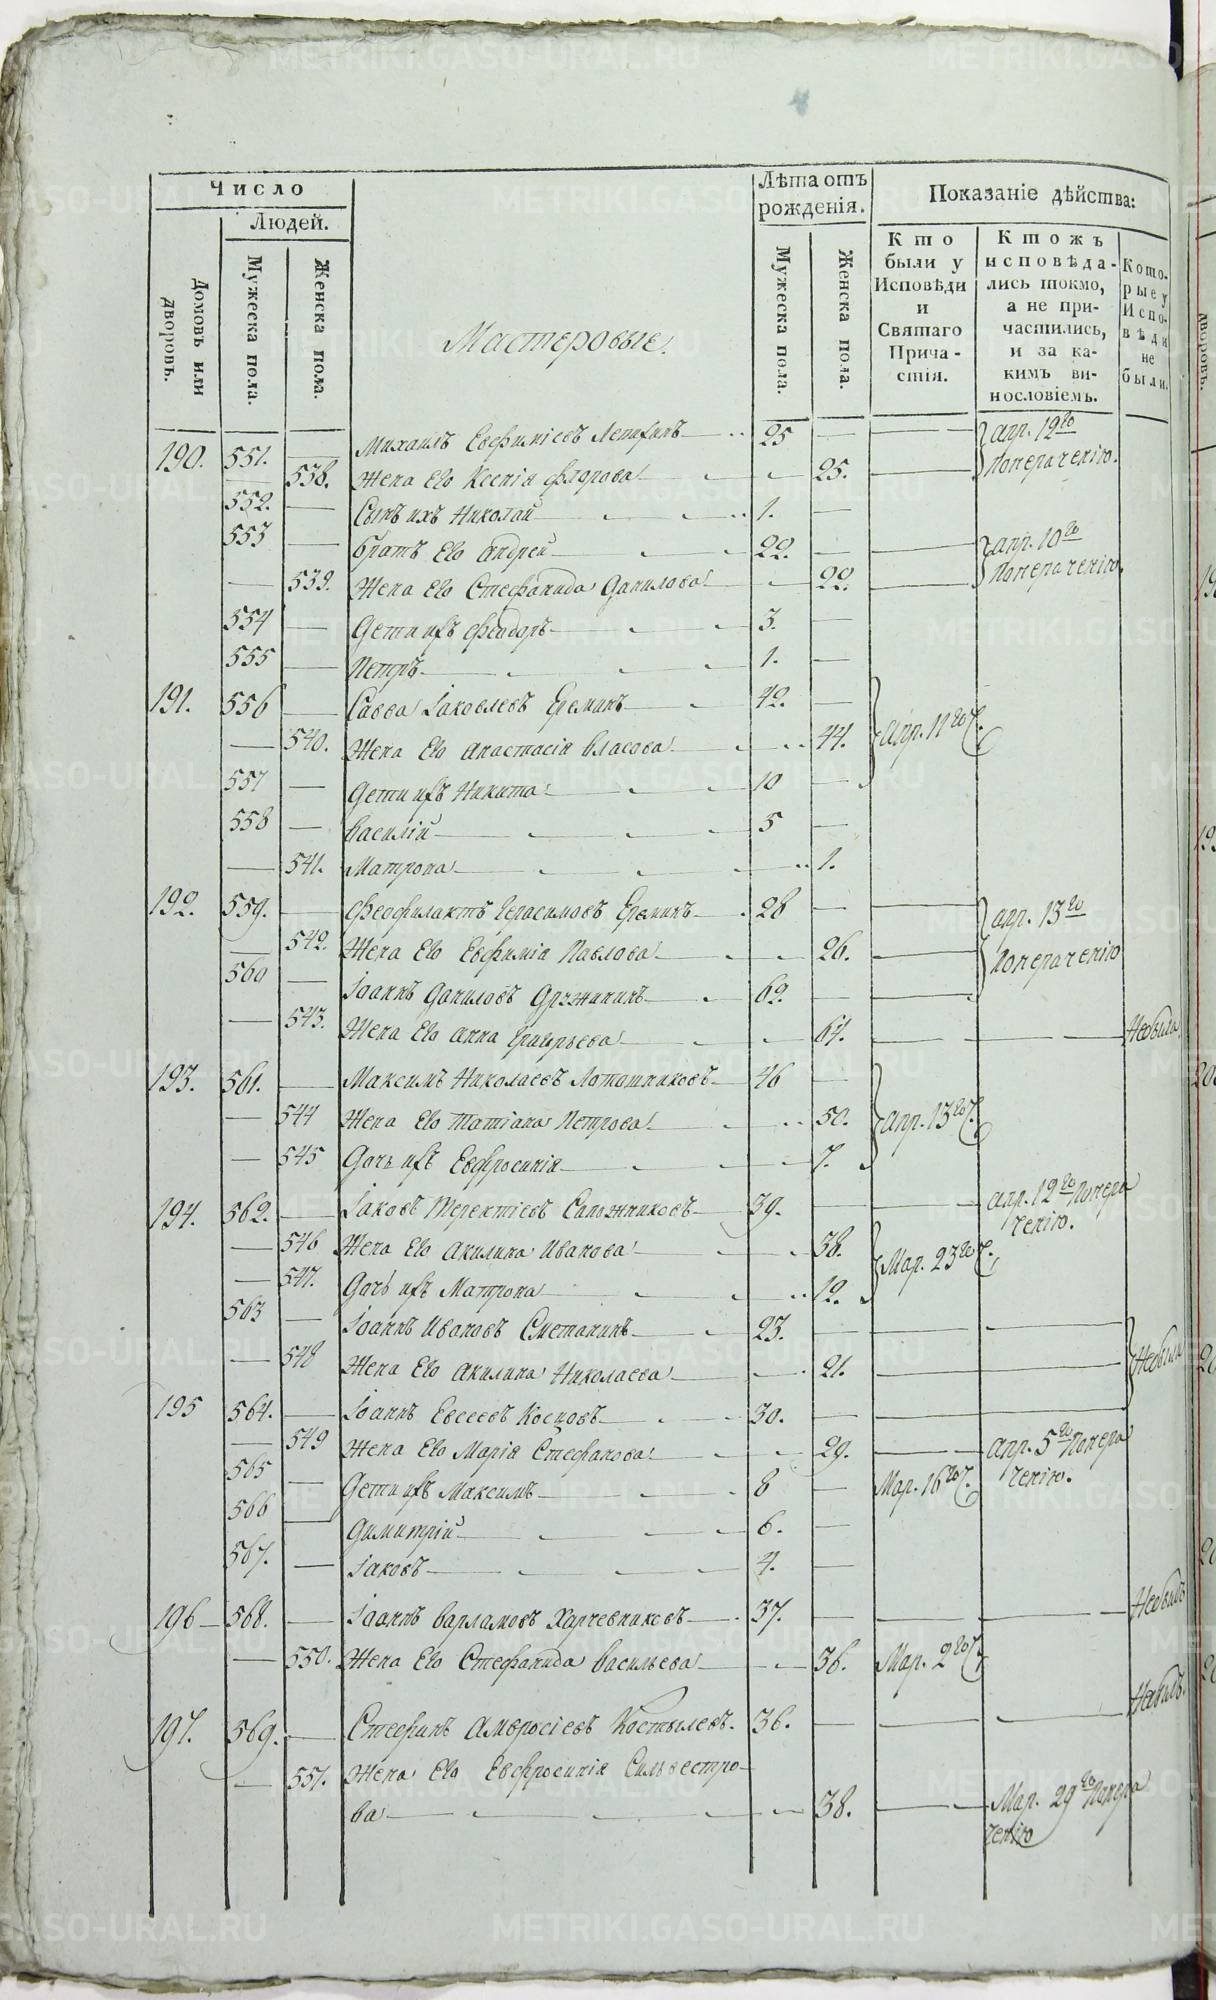 Число
Людей.
Домовъ или дворовъ.
Мужеска пола.
Женска пола.
Мастеровые.
Лѣта отъ рожденія.
Мужеска пола.
Женска пола.
Показаніе дѣйства:
Кто были у Исповѣди и Святаго Причастія.
Ктожъ исповѣдались токмо, а не причастились, и за какимъ винословіемъ.
Которые у Исповѣди не были.
190. 551. — Михаилъ Евфиміевъ 25 — — апр. 12го
— 538. Жена Его Ксенія Флорова — 25. — Понераченію.
552. — Сынъ ихъ Николай 1. —
553 — братъ Его андрей 22. — — апр. 10го
— 539. Жена Его Стефанида Данилова — 22. — Понераченію.
554 — Дети ихъ Феодоръ 3. —
555 — Петръ 1. —
191. 556 — Савва Іаковлевъ Ереминъ 42. —
— 540. Жена Его анастасія власова — 44. апр. 11го
557 — Дети ихъ Никита 10 —
558 — василій 5 —
— 541. Матрона — 1.
192. 559. — Феофилактъ Герасимовъ Ереминъ 28 — — апр. 13го
— 542. Жена Его Евфимія Павлова — 26. — Понераченію
560 — Іоаннъ Даниловъ 62. — —
— 543. Жена Его анна Григорьева — 64. — — Небыла
193. 561. — Максимъ Николаевъ Лотошниковъ 46 —
— 544 Жена Его Татіана Петрова — 50. апр. 13го
— 545 Дочь ихъ Евфросинія — 7.
194. 562. — Іаковъ Терентіевъ Сапожниковъ 39. — — апр. 12го Понераченію.
— 546 Жена Его акилина Иванова — 38. Мар. 23го
— 547. Дочь ихъ Матрона — 12.
563 — Іоаннъ Ивановъ Сметанинъ 23. — — —
— 548 Жена Его акилина Николаева — 21. — — Небыли
195 564. — Іоаннъ Евсеевъ Косцовъ 30. — — —
— 549 Жена Его Марія Стефанова — 29. — апр. 5го Понераченію.
565 — Дети ихъ Максимъ 8 — Мар. 16го
566 — Димитрій 6. —
567. — Іаковъ 4. —
196 568. — Іоаннъ варламовъ Харчевниковъ 37. — — — Небылъ
— 550. Жена Его Стефанида васильева — 36. Мар. 2го
197. 569. — Стефанъ Амвросіевъ Костылевъ 36. — — — Небылъ.
— 551. Жена Его Евфросинія Сильвестро-
ва — 38. — Мар. 29го Понераченію
METRIKI.GASO-URAL.RU